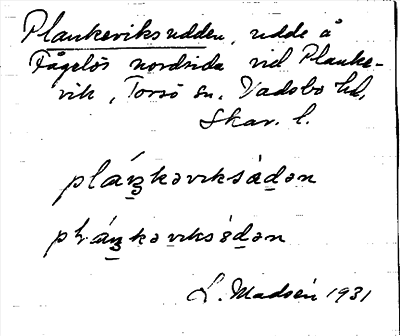 Plankeviksudden, udde å
Fågelös nordsida vid Planke-
vik, Torsö sn, Vadsbo hd,
Skar. l.
pláŋkəviksùdən
pláŋkəviksùdən
L. Madsén 1931